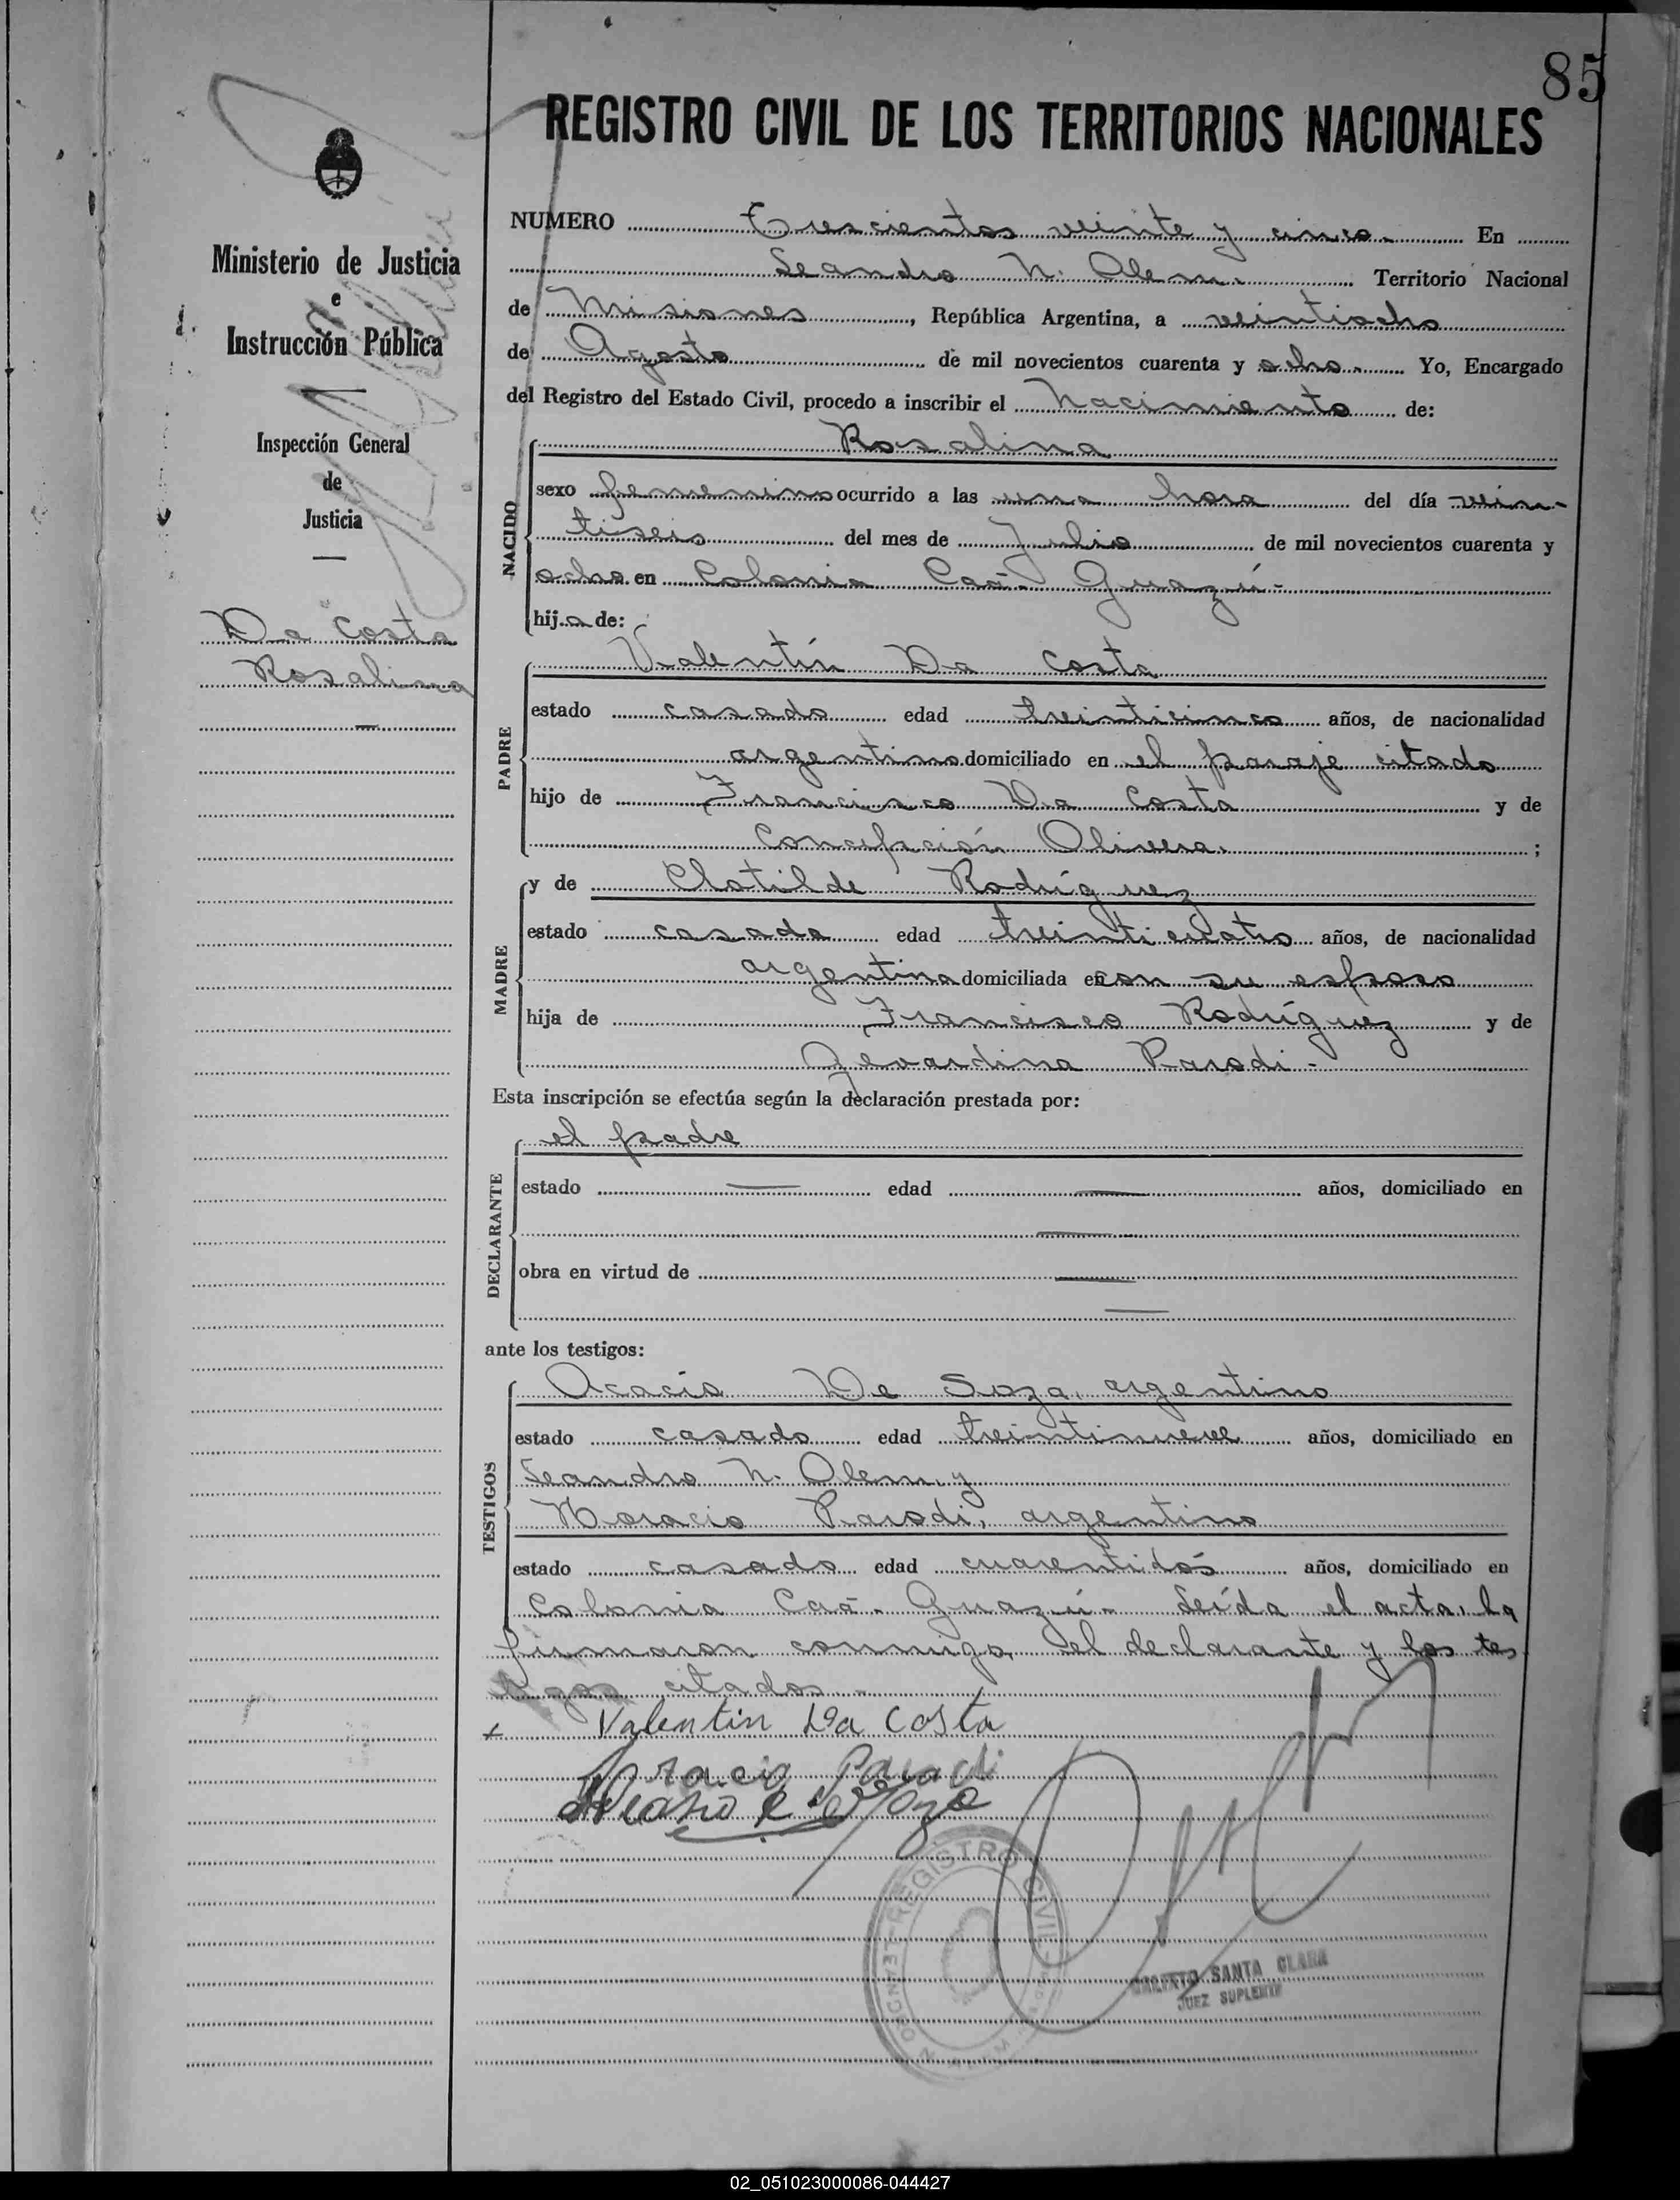 85
REGISTRO CIVIL DE LOS TERRITORIOS NACIONALES
Ministerio de Justicia
e
Instrucción Pública
Inspección General
de
Justicia
Da Costa
Rosalina
NUMERO Trescientos veinte y cinco. En
Leandro N. Alem. Territorio Nacional
de Misiones, República Argentina, a veintiocho
de Agosto de mil novecientos cuarenta y ocho. Yo, Encargado
del Registro del Estado Civil, procedo a inscribir el nacimiento de:
NACIDO
Rosalina
sexo femenino ocurrido a las una hora del día vein-
tiseis del mes de Julio de mil novecientos cuarenta y
ocho en Colonia Caá-Guazú-
hija de:
PADRE
Valentín Da Costa
estado casado edad treinticinco años, de nacionalidad
argentino domiciliado en el paraje citado
hijo de Francisco Da Costa y de
Concepción Olivera. ;
MADRE
y de Clotilde Rodríguez
estado casada edad treinticuatro años, de nacionalidad
argentina domiciliada en con su esposo
hija de Francisco Rodríguez y de
Parodi-
Esta inscripción se efectúa según la declaración prestada por:
DECLARANTE
el padre
estado — edad — años, domiciliado en
—
obra en virtud de —
—
ante los testigos:
TESTIGOS
Acacio De Soza, argentino
estado casado edad treintinueve años, domiciliado en
Leandro N. Alem, y
Horacio Parodi, argentino
estado casado edad cuarentidós años, domiciliado en
Colonia Caá-Guazú- Leída el acta, la
firmaron conmigo, el declarante y los tes
tigos citados-
Valentin Da Costa
Oracio Parodi
REGISTRO CIVIL
SANTA CLARA
JUEZ SUPLENTE
02_051023000086-044427